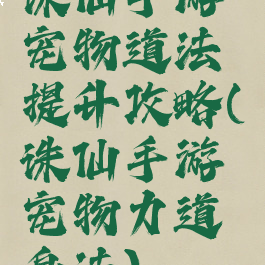 诛仙手游
宠物道法
提升攻略(
诛仙手游
宠物力道
身法)